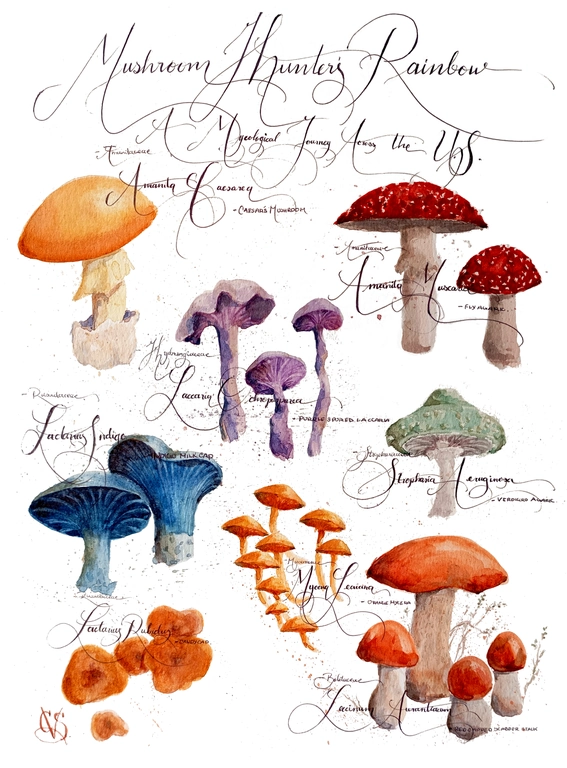 Mushroom Hunter's Rainbow
A Mycological Journey Across the U.S.
Amanita Caesarea
- CAESAR'S MUSHROOM
Amanita Muscaria
- FLY AGARIC
Hydnangiaceae
Laccaria Ochropurpurea
- PURPLE SPORED LACCARIA
Lactarius Indigo
INDIGO MILK CAP
Strophariaceae
Stropharia Aeruginosa
- VERDIGRIS AGARIC
Mycena Leaiana
- ORANGE MYCENA
Lactarius Rubidus
- CANDY CAP
Boletaceae
Leccinum Aurantiacum
RED CAPPED SCABER STALK